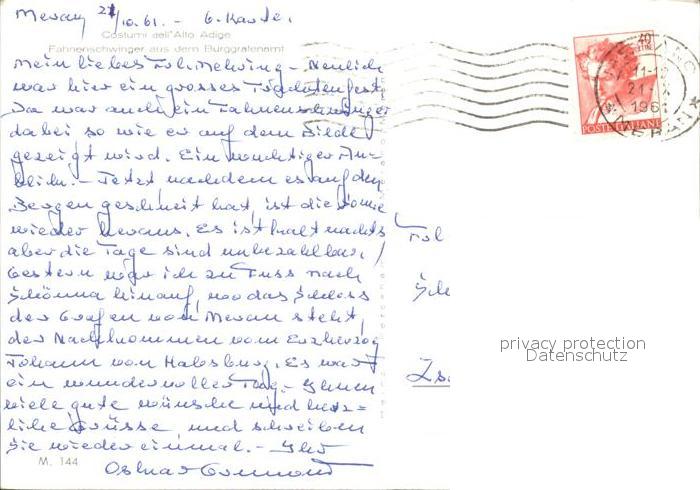 Meran 21/10.61. - 6. Karte.
Costumi dell'Alto Adige
Fahnenschwinger aus dem Burggrafenamt
Mein liebes Frl. Mehring - Neulich
war hier ein grosses Trachtenfest
Da war auch ein Fahnenschwinger
dabei so wie er auf dem Bilde
gezeigt wird. Ein wuchtiger An-
blick. - Jetzt nachdem es auf den
Bergen geschneit hat, ist die Sonne
wieder heraus. Es ist kalt nachts
aber die Tage sind unbezahlbar!
Gestern war ich zu Fuss nach
Schönna hinauf, wo das Schloss
der Grafen von Meran steht,
der Nachkommen vom Erzherzog
Johann von Habsburg. Es war
ein wundervoller Tag. - Ihnen
viele gute Wünsche und herz=
liche Grüsse und schreiben
Sie wieder einmal. - Ihr
M. 144
Oskar
Frl
Sch
Zs
40
LIRE
POSTE ITALIANE
11-12
21
1961
MERAN
privacy protection
Datenschutz